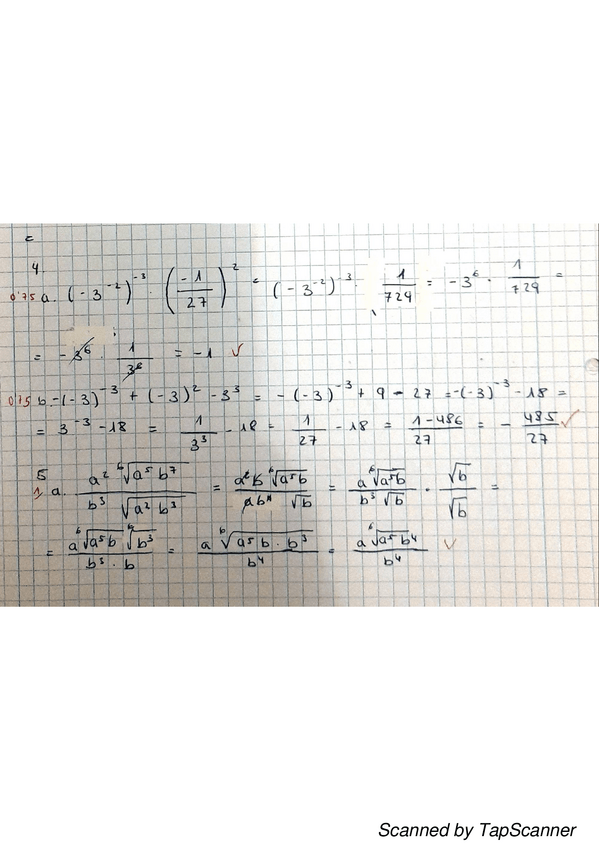 c
4.
0'75 a. (-3⁻²)⁻³ · (-1/27)² = (-3⁻²)⁻³ · 1/729 = -3⁶ · 1/729 =
= -3⁶ · 1/3⁶ = -1 ✓
0'75 b. -(-3)⁻³ + (-3)² - 3³ = -(-3)⁻³ + 9 - 27 = -(-3)⁻³ - 18 =
= 3⁻³ - 18 = 1/3³ - 18 = 1/27 - 18 = (1-486)/27 = - 485/27 ✓
5
1 a. (a² ⁶√(a⁵ b⁷))/(b³ √(a² b³)) = (a² b ⁶√(a⁵b))/(a b⁴ √b) = (a ⁶√(a⁵b))/(b³ √b) · √b/√b =
= (a ⁶√(a⁵b) ⁶√(b³))/(b³ · b) = (a ⁶√(a⁵b · b³))/b⁴ = (a ⁶√(a⁵ b⁴))/b⁴ ✓
Scanned by TapScanner